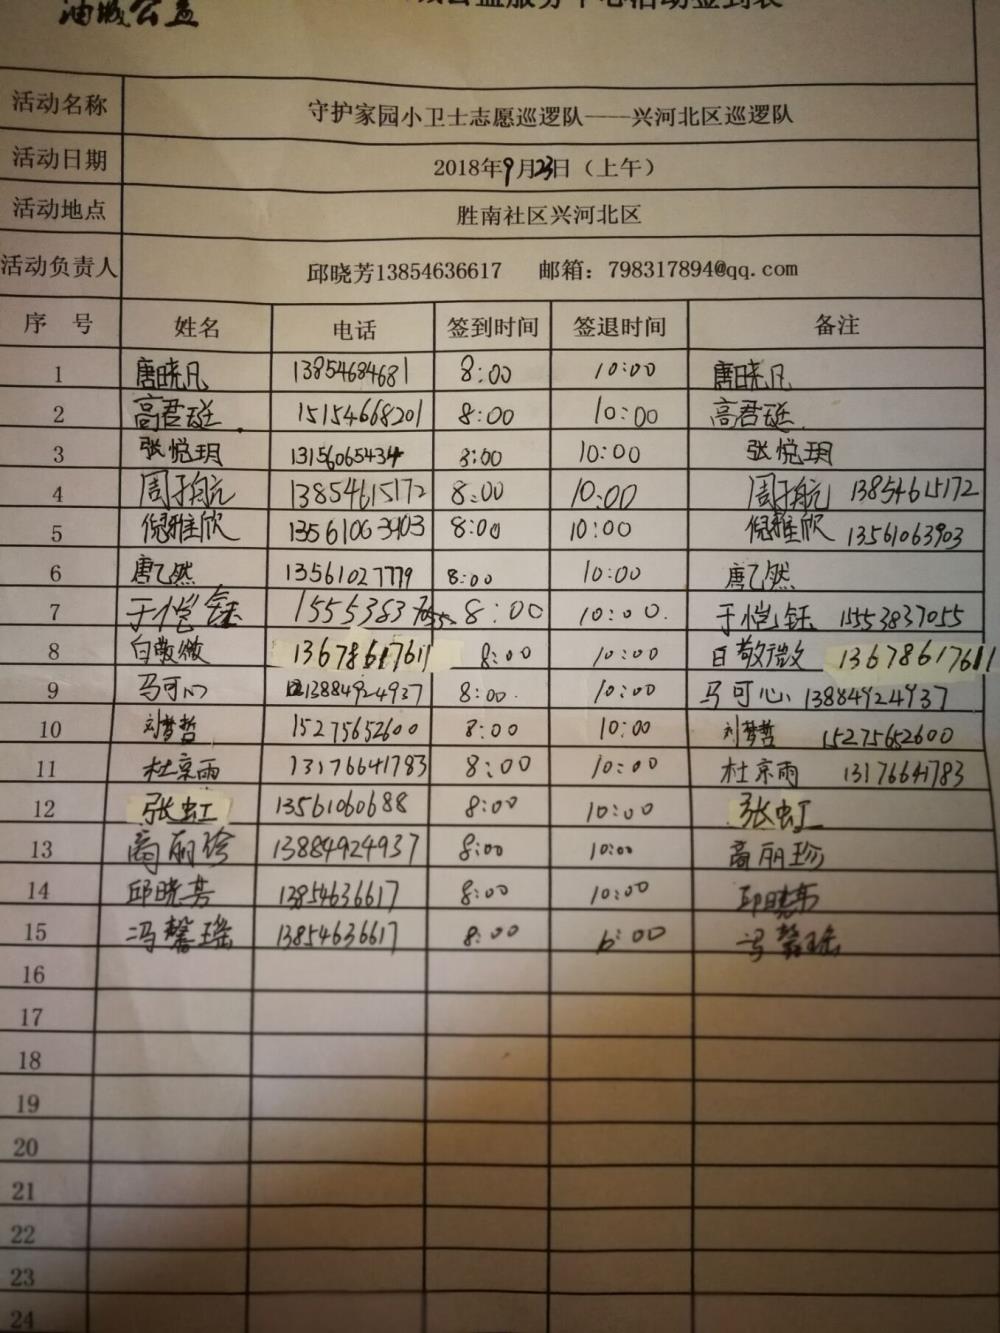 油城公益
公益服务中心活动签到表
活动名称 守护家园小卫士志愿巡逻队——兴河北区巡逻队
活动日期 2018年9月23日（上午）
活动地点 胜南社区兴河北区
活动负责人 邱晓芳13854636617 邮箱：798317894@qq.com
序 号 姓名 电话 签到时间 签退时间 备注
1 唐晓凡 13854684681 8:00 10:00 唐晓凡
2 高君 15154668201 8:00 10:00 高君
3 张悦玥 13156065434 8:00 10:00 张悦玥
4 周于航 13854615172 8:00 10:00 周于航 13854615172
5 倪雅欣 13561063903 8:00 10:00 倪雅欣 13561063903
6 唐乙然 13561027779 8:00 10:00 唐乙然
7 于恺钰 15553837055 8:00 10:00. 于恺钰 15553837055
8 白敬微 13678617611 8:00 10:00 白敬微 13678617611
9 马可心 13884924937 8:00 10:00 马可心 13884924937
10 刘梦哲 15275652600 8:00 10:00 刘梦哲 15275652600
11 杜京雨 13176641783 8:00 10:00 杜京雨 13176641783
12 张虹 13561060688 8:00 10:00 张虹
13 高丽珍 13884924937 8:00 10:00 高丽珍
14 邱晓芳 13854636617 8:00 10:00 邱晓芳
15 冯馨瑶 13854636617 8:00 6:00 冯馨瑶
16
17
18
19
20
21
22
23
24